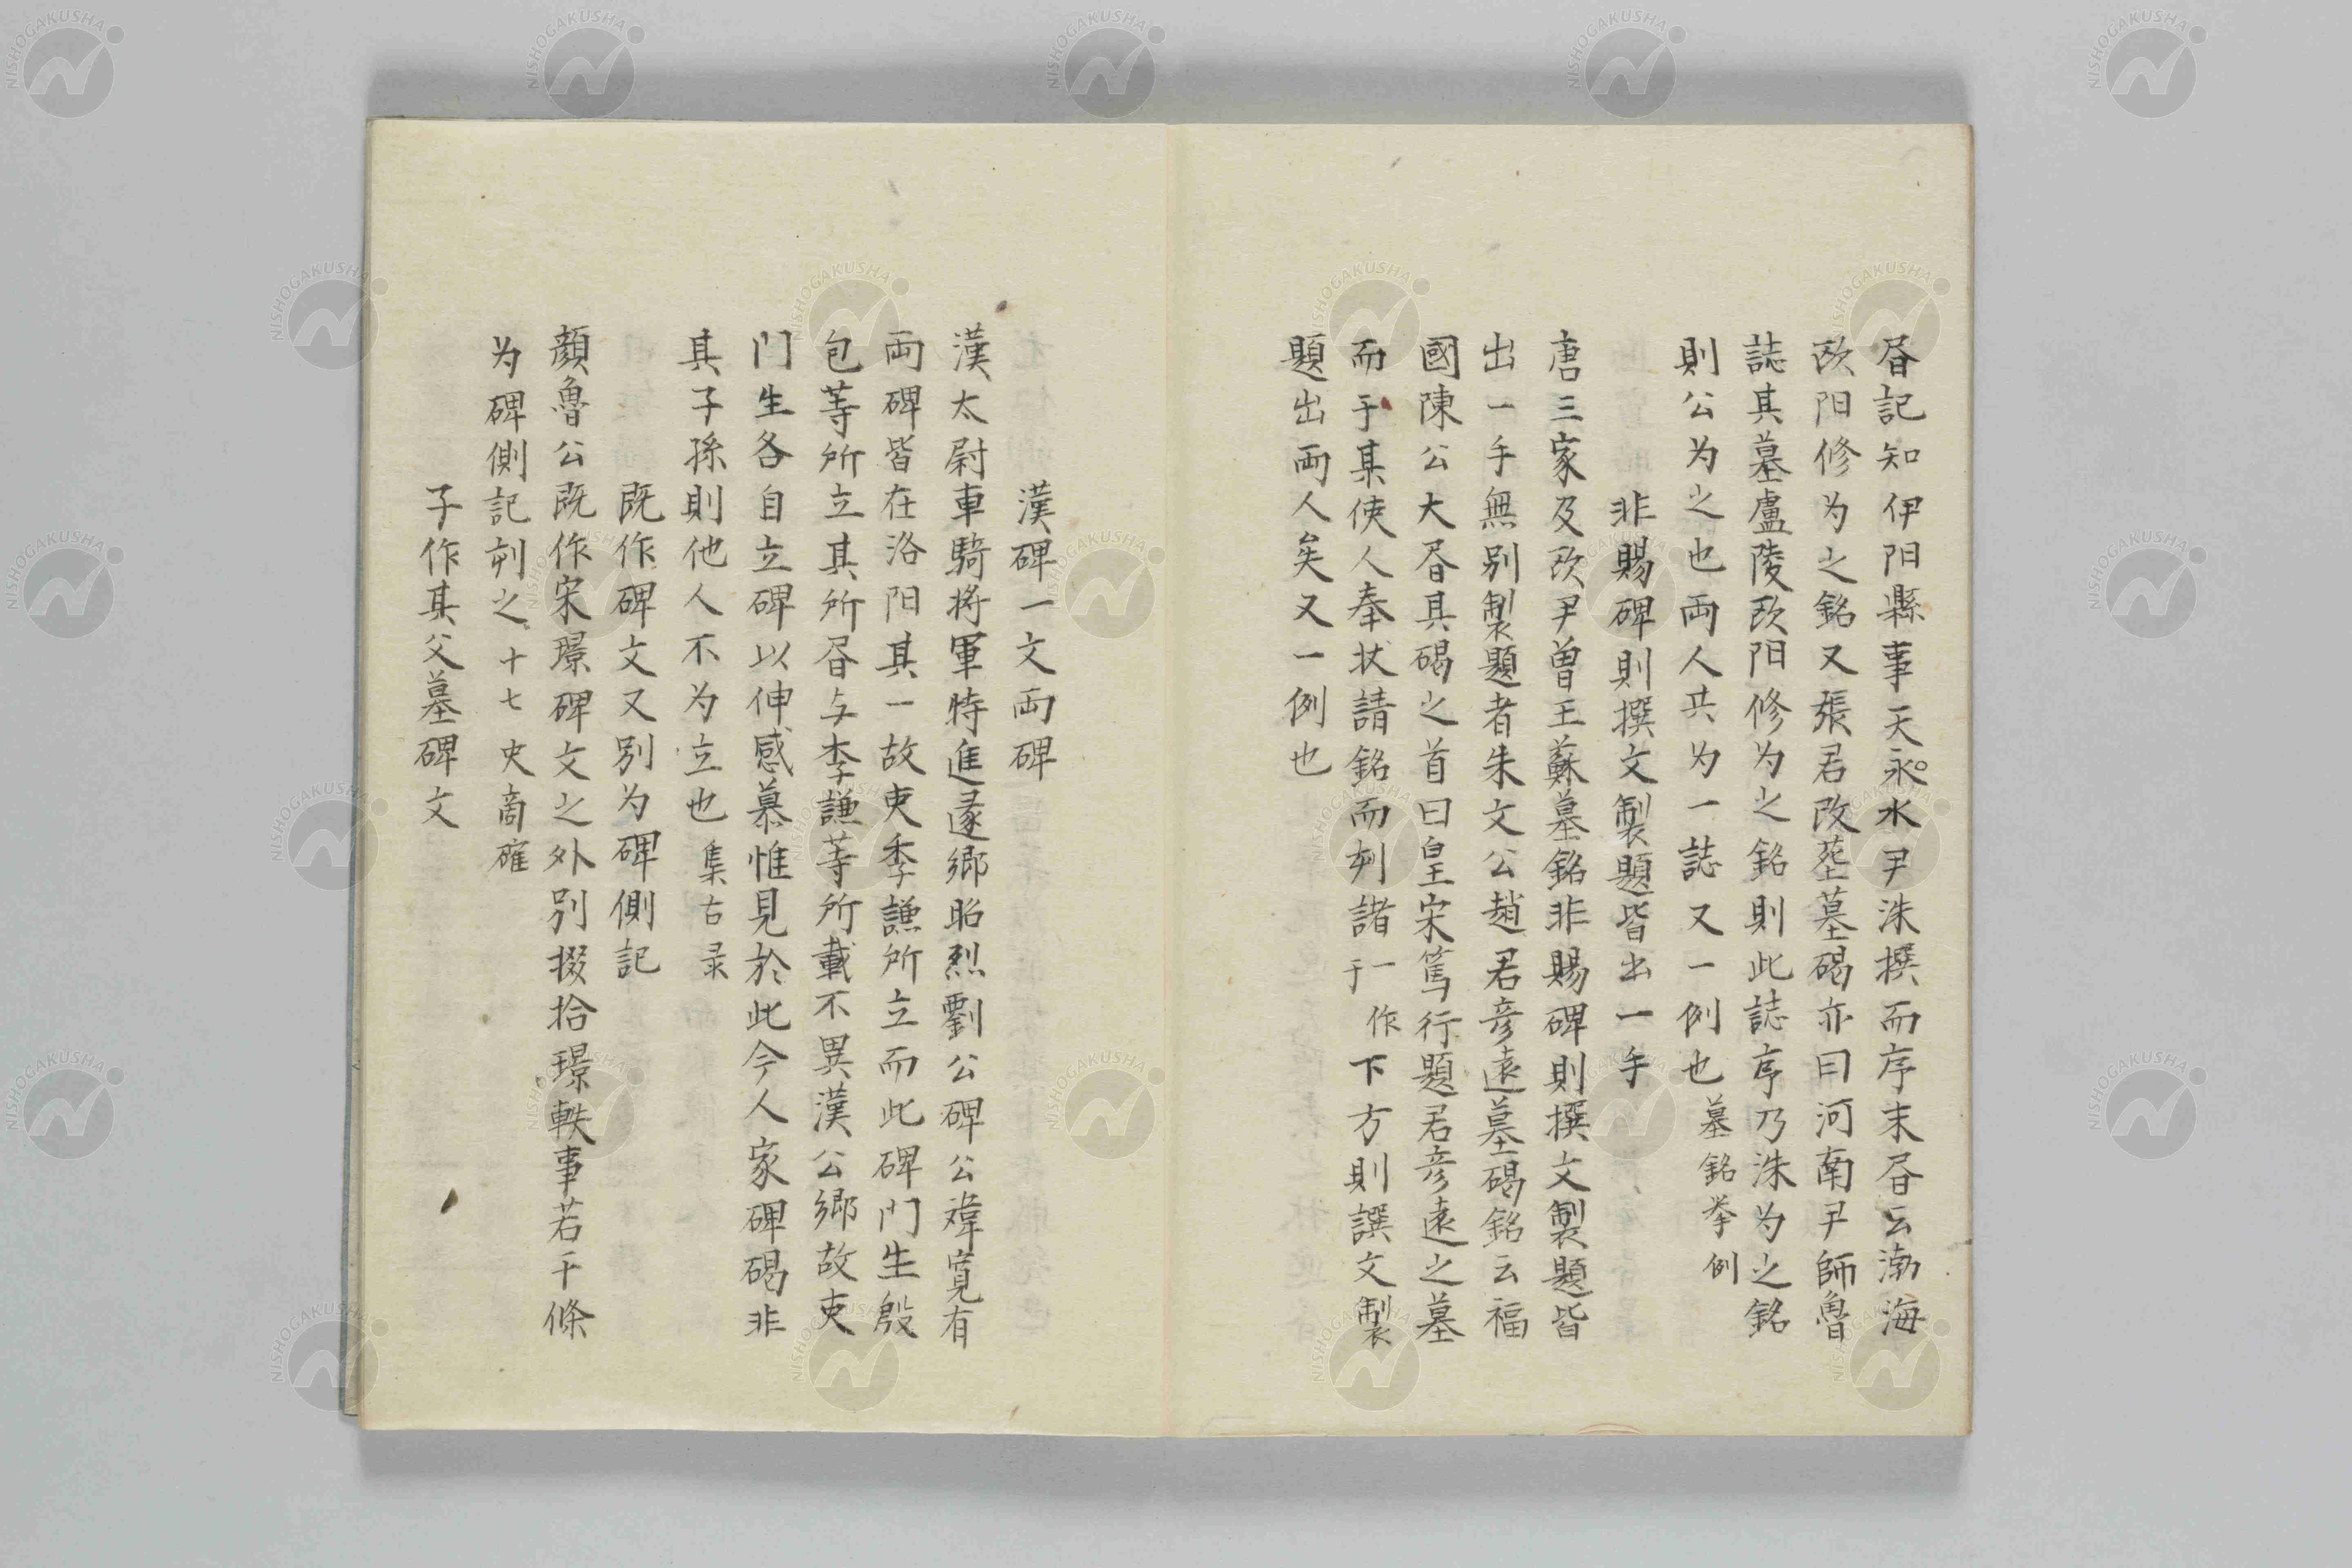 昬記知伊阳縣事天永水尹洙撰而序末昬云渤海
欧阳修为之銘又張君改塟墓碣亦曰河南尹師魯
誌其墓盧陵欧阳修为之銘則此誌序乃洙为之銘
則公为之也両人共为一誌又一例也墓銘挙例
非賜碑則撰文製題皆出一手
唐三家及欧尹曽王蘇墓銘非賜碑則撰文製題皆
出一手無别製題者朱文公趙君彦遠墓碣銘云福
國陳公大昬其碣之首曰皇宋篤行題君彦遠之墓
而于某使人奉状請銘而刋諸一作于下方則譔文製
題出両人矣又一例也
漢碑一文両碑
漢太尉車騎将軍特進逯郷昭烈劉公碑公諱寛有
両碑皆在洛阳其一故吏李謙所立而此碑門生殷
包等所立其所昬与李謙等所載不異漢公郷故吏
門生各自立碑以伸感慕惟見於此今人家碑碣非
其子孫則他人不为立也集古录
既作碑文又别为碑側記
顔魯公既作宋璟碑文之外别掇拾璟軼事若干條
为碑側記刋之十七史商確
子作其父墓碑文